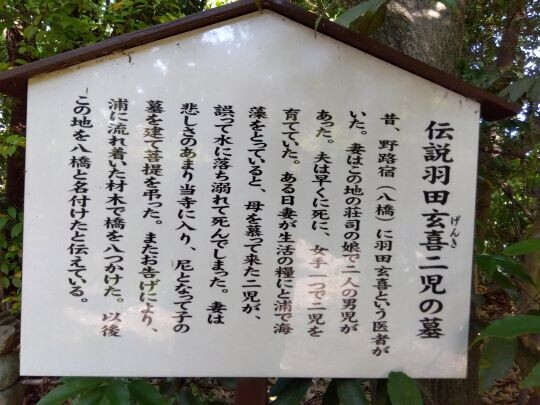 伝説羽田玄喜二児の墓
げんき
昔、野路宿（八橋）に羽田玄喜という医者が
いた。妻はこの地の荘司の娘で二人の男児が
あった。夫は早くに死に、女手一つで二児を
育てていた。ある日妻が生活の糧にと浦で海
藻をとっていると、母を慕って来た二児が、
誤って水に落ち溺れて死んでしまった。妻は
悲しさのあまり当寺に入り、尼となって子の
墓を建て菩提を弔った。またお告げにより、
浦に流れ着いた材木で橋を八つかけた。以後
この地を八橋と名付けたと伝えている。